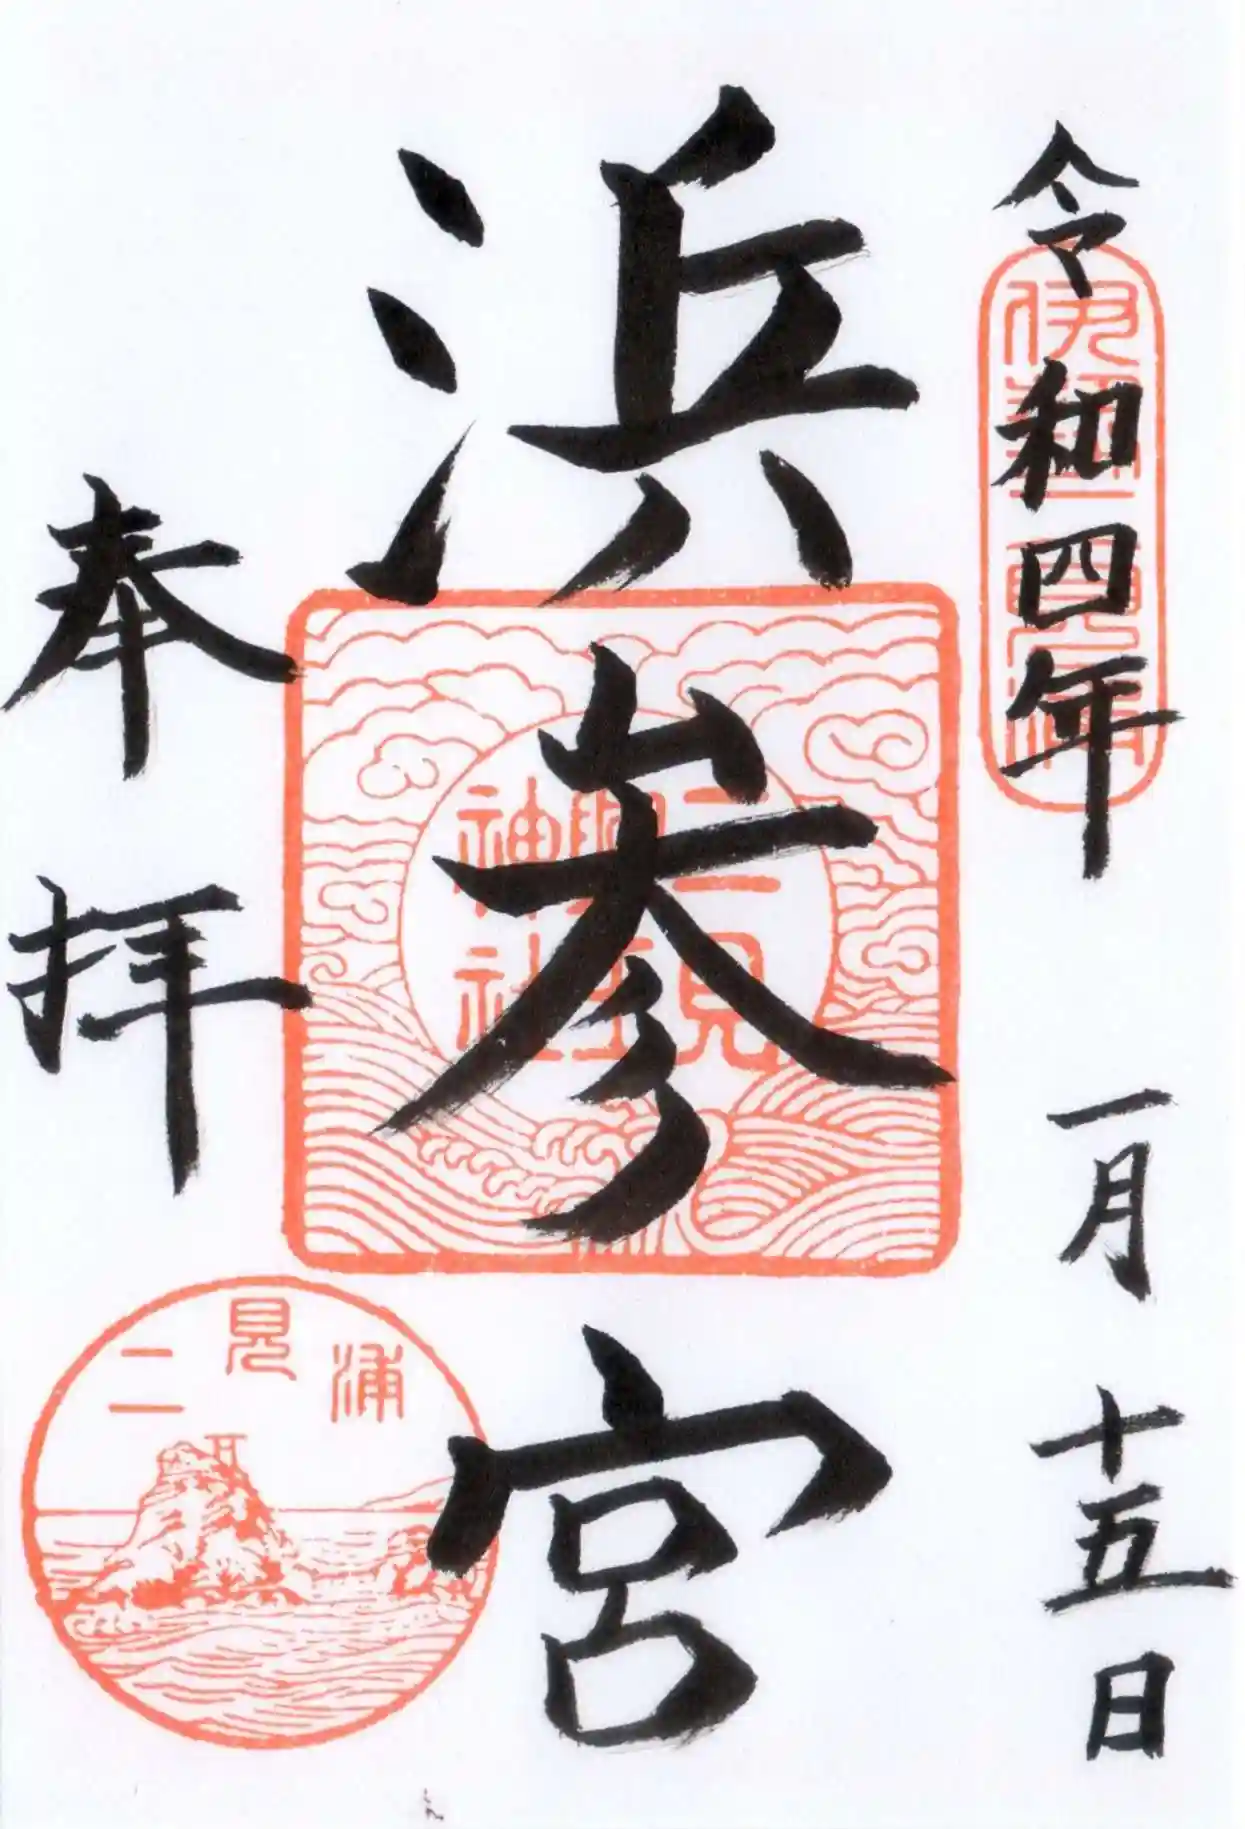 令和四年 一月 十五日
伊勢二見浦
浜参宮
二見
興玉
神社
奉拝
二見浦